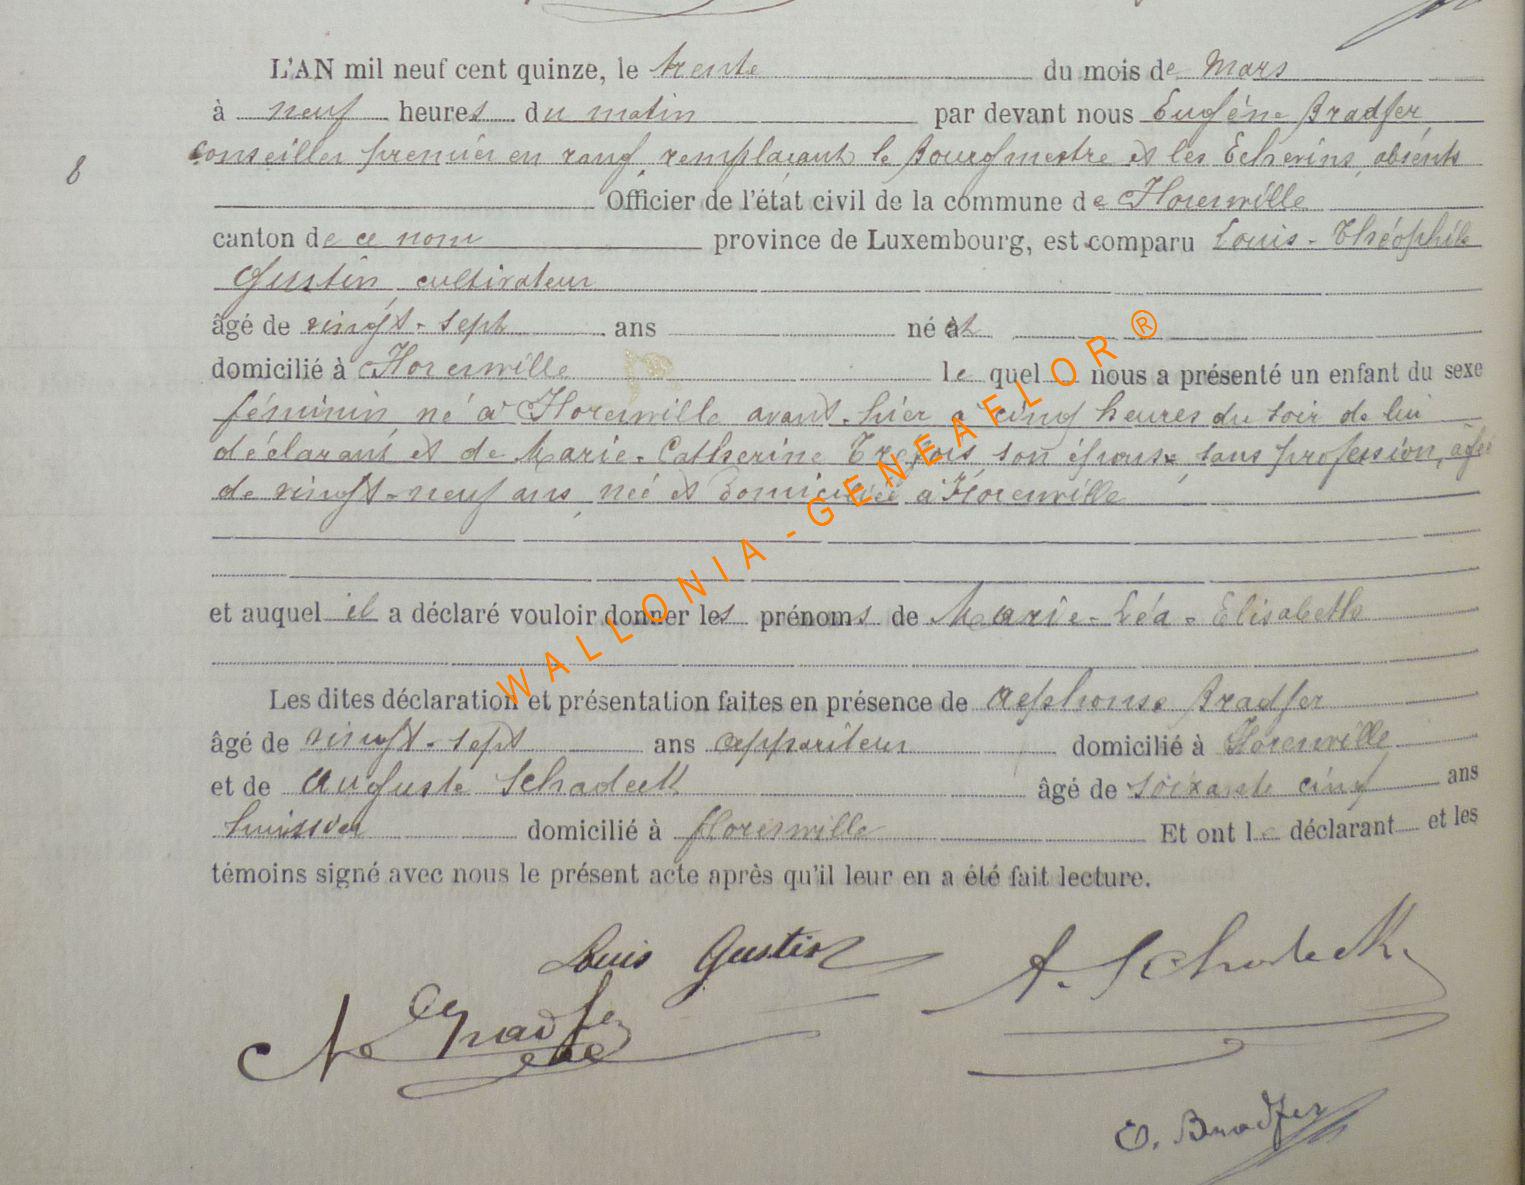 L'AN mil neuf cent quinze, le trente du mois de Mars
à neuf heures du matin par devant nous Eugène Bradfer
8 conseiller premier en rang, remplaçant le Bourgmestre et les Echevins absents
Officier de l'état civil de la commune de Florenville
canton de ce nom province de Luxembourg, est comparu Louis-Théophile
Gustin, cultivateur
âgé de vingt-sept ans né et
domicilié à Florenville le quel nous a présenté un enfant du sexe
féminin, né à Florenville avant-hier à cinq heures du soir de lui
déclarant et de Marie-Catherine son épouse, sans profession, âgée
de vingt-neuf ans, née et domiciliée à Florenville
et auquel il a déclaré vouloir donner les prénoms de Marie-Léa-Elisabeth
Les dites déclaration et présentation faites en présence de Alphonse Bradfer
âgé de vingt-sept ans appariteur domicilié à Florenville
et de Auguste Schadeck âgé de soixante cinq ans
huissier domicilié à Florenville Et ont le déclarant et les
témoins signé avec nous le présent acte après qu'il leur en a été fait lecture.
Louis Gustin A. Schadeck
Bradfer
E. Bradfer
WALLONIA-GENEAFLOR ®